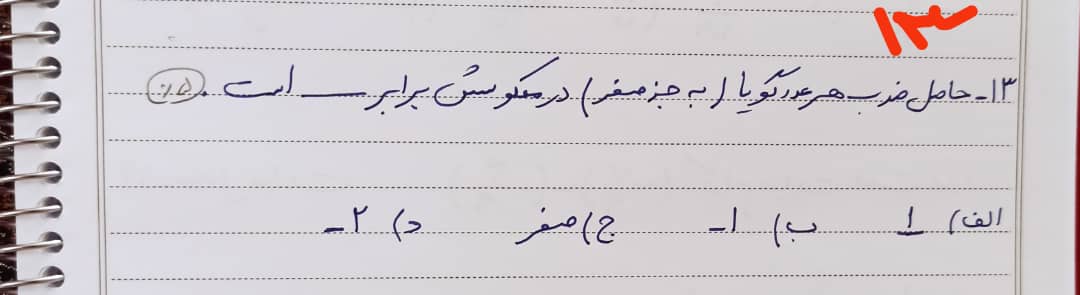 ۱۳
۱۳- حاصل ضرب هر عدد گویا (به جز صفر) در معکوسش برابر ــــ است. ۵٪
الف) ۱ ب) ۱- ج) صفر د) ۲-